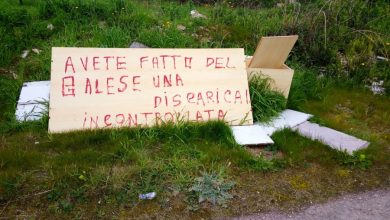 AVETE FATTO DEL
GALESE UNA
DISCARICA!
INCONTROLLATA